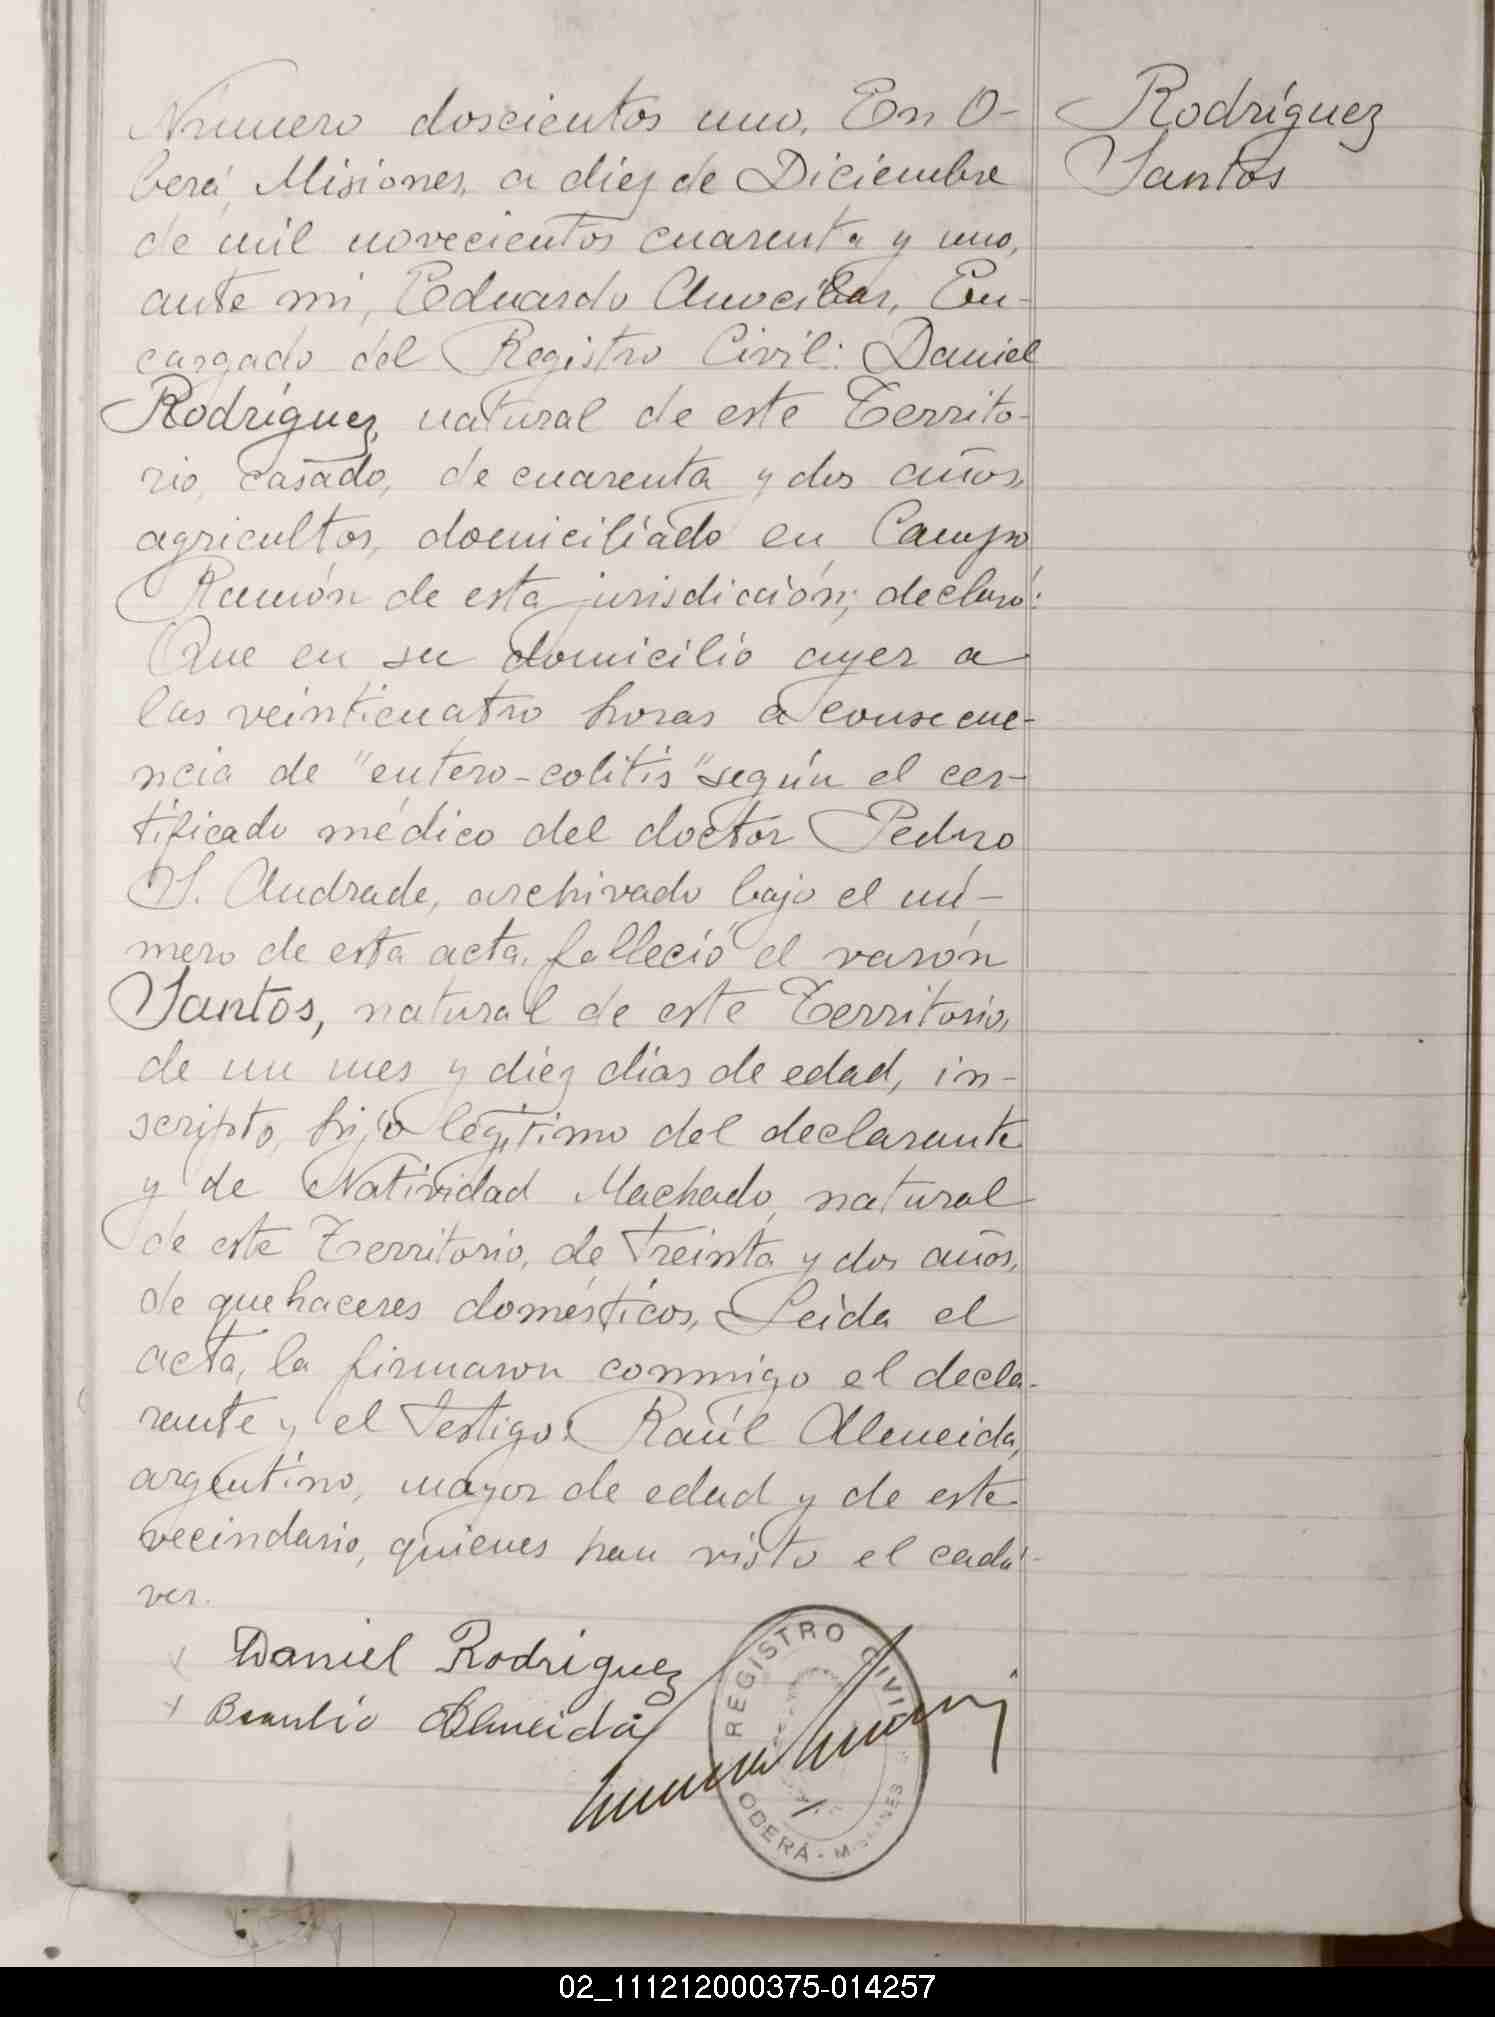 Rodríguez
Santos
Número doscientos uno. En O-
berá, Misiones, a diez de Diciembre
de mil novecientos cuarenta y uno,
ante mi, Eduardo Amocibar, En-
cargado del Registro Civil: Daniel
Rodríguez, natural de este Territo-
rio, casado, de cuarenta y dos años,
agricultor, domiciliado en Campo
Ramón de esta jurisdicción; declaró:
Que en su domicilio ayer a
las veinticuatro horas a consecue-
ncia de "entero-colitis" según el cer-
tificado médico del doctor Pedro
S. Andrade, archivado bajo el nú-
mero de esta acta, falleció el varón
Santos, natural de este Territorio,
de un mes y diez días de edad, in-
scripto, hijo legítimo del declarante
y de Natividad Machado, natural
de este Territorio, de treinta y dos años,
de quehaceres domésticos. Leída el
acta, la firmaron conmigo el decla-
rante y el testigo: Raúl Almeida,
argentino, mayor de edad y de este
vecindario, quienes han visto el cadá-
ver.
Daniel Rodriguez
Almeida
REGISTRO CIVIL
OBERÁ - MISIONES
02_111212000375-014257